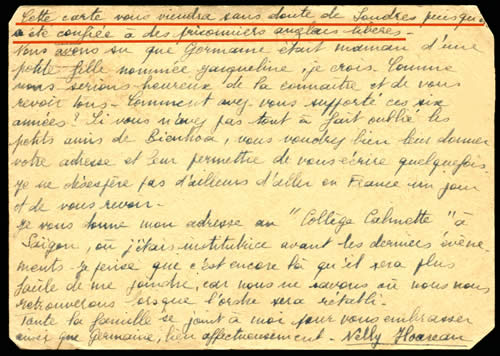 Cette carte vous viendra sans doute de Londres puisqu'
a été confiée à des prisonniers anglais libérés.
Nous avons su que Germaine était maman d'une
petite fille nommée Jacqueline, je crois. Comme
nous serions heureux de la connaître et de vous
revoir tous. Comment avez-vous supporté ces six
années? Si vous n'avez pas tout à fait oublié les
petits amis de Bienhoa, vous voudrez bien leur donner
votre adresse et leur permettre de vous écrire quelquefois.
Je ne désespère pas d'ailleurs d'aller en France un jour
et de vous revoir.
Je vous donne mon adresse au "Collège Calmette" à
Saïgon, où j'étais institutrice avant les derniers évène-
ments. Je pense que c'est encore là qu'il sera plus
facile de me joindre, car nous ne savons où nous nous
retrouverons lorsque l'ordre sera rétabli.
Toute la famille se joint à moi pour vous embrasser
ainsi que Germaine, bien affectueusement. Nelly Hoareau